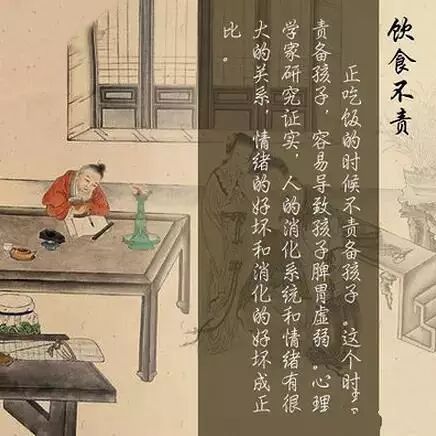 饮食不责
正吃饭的时候不责备孩子。这个时
责备孩子，容易导致孩子脾胃虚弱。心理
学家研究证实，人的消化系统和情绪有很
大的关系，情绪的好坏和消化的好坏成正
比。